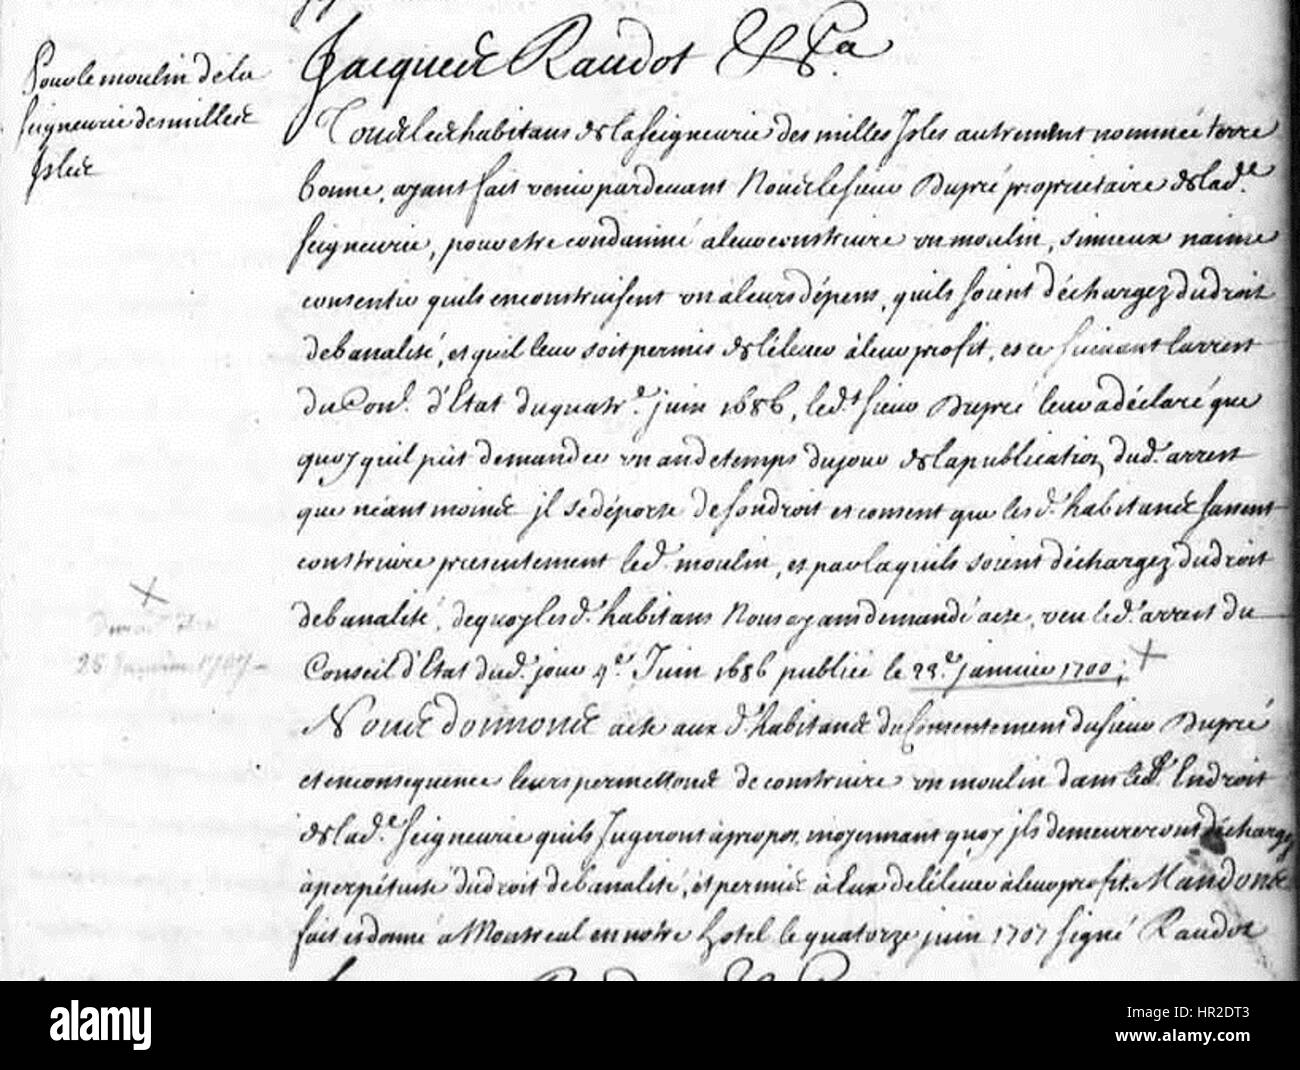 Pour le moulin de la
seigneurie des milles
Isles
Jacques Raudot &c.a
Tous les habitans de la seigneurie des milles Isles autrement nommée terre
bonne, ayant fait venir pardevant Nous le sieur Dupré proprietaire de lad.e
seigneurie, pour etre condamné a leur construire un moulin, si mieux n'aime
consentir quils en construisent un a leurs dépens, quils soient déchargez du droit
de banalité, et quil leur soit permis de l'élever à leur profit, et ce suivant l'arrest
du Con.l d'Etat du quatr.e juin 1686, led.t sieur Dupré leur a déclaré que
quoy quil put demander un an de temps du jour de la publication dud. arrest
que néant moins jl se déporte de son droit et consent que lesd. habitans fassent
construire presentement led. moulin, et par la quils soient déchargez du droit
de banalité, de quoy lesd. habitans Nous ayans demandé acte, veu led. arrest du
Conseil d'Etat dud. jour 4.e Juin 1686 publié le 22.e janvier 1700;
Nous donnons acte aux d. habitans du Consentement du sieur Dupré
et en consequence leurs permettons de construire un moulin dans led. Endroit
de lad.e seigneurie quils Jugeront àpropos, moyennant quoy jls demeureront décharge
à perpétuité du droit de banalité, et permis à Eux de l'élever à leur profit. Mandons &c
fait et donné a Montreal en notre hotel le quatorze juin 1707 signé Raudot
25 Janvier 1707
alamy
Image ID: HR2DT3
www.alamy.com